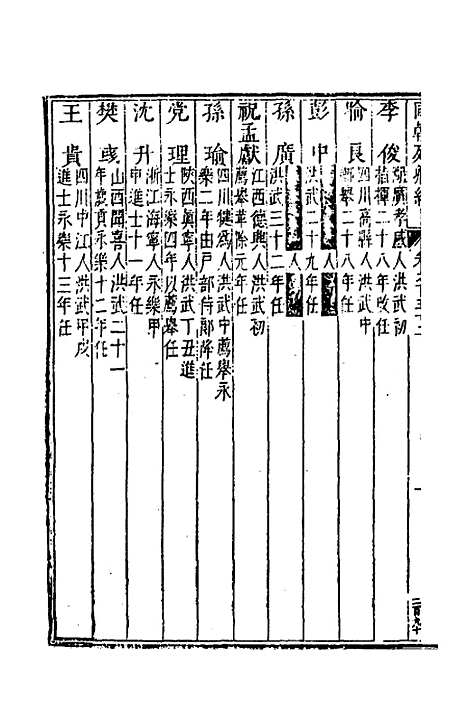 李俊 湖廣孝感人洪武初
二十八年改任
喻良 四川高縣人洪武中
薦舉二十八年任
彭中 人
洪武二十九年任
孫廣 人
洪武三十二年任
祝孟獻 江西德興人洪武初
薦舉革除元年任
孫瑜 四川犍為人洪武中薦舉永
樂二年由戶部侍郎降任
党理 陝西真寧人洪武丁丑進
士永樂四年以薦舉任
沈升 浙江海寧人永樂甲
申進士十一年任
樊彧 山西聞喜人洪武二十一
年歲貢永樂十二年任
王貴 四川中江人洪武甲戌
進士永樂十三年任